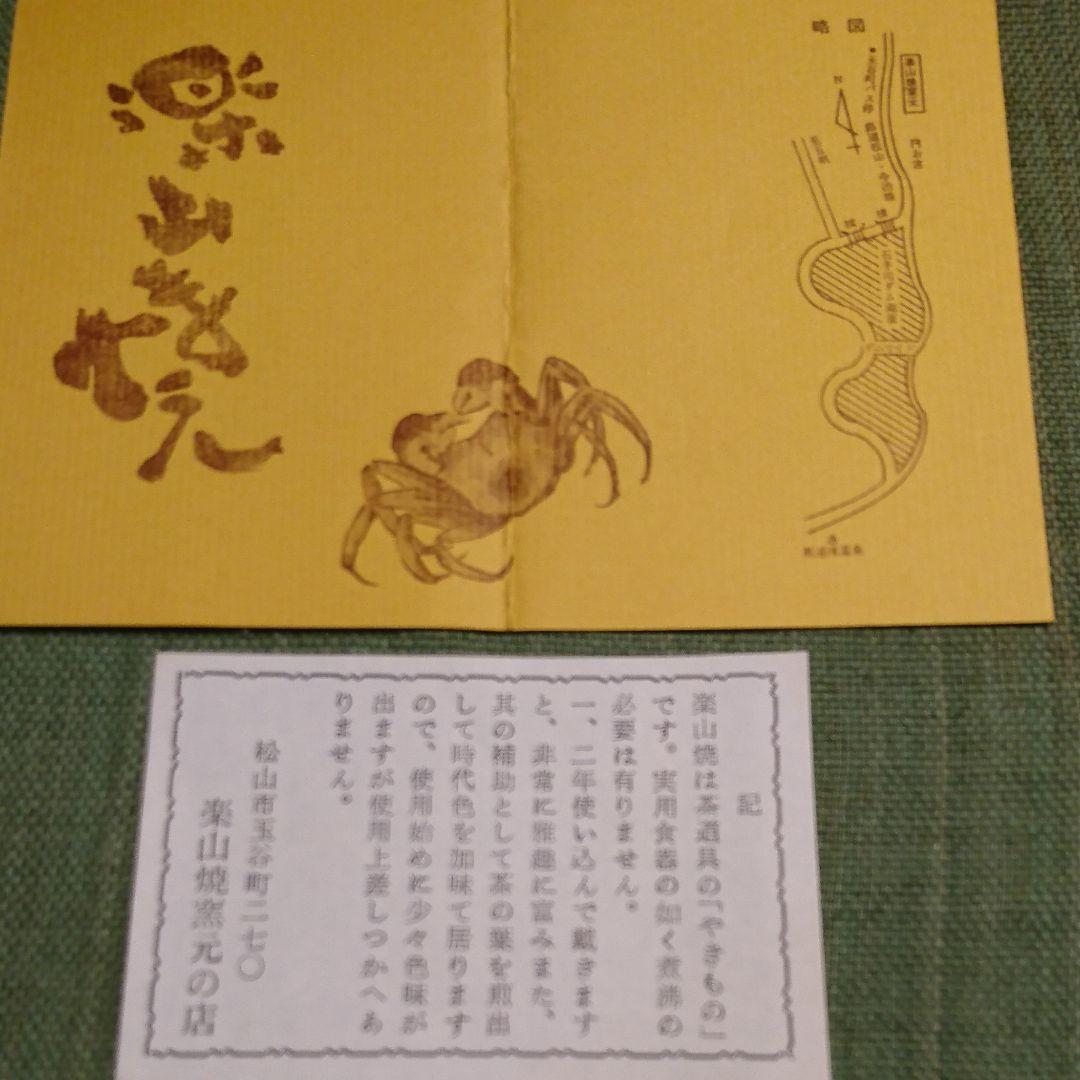 楽山やき
窯元
略図
楽山焼窯元
石手川ダム湖
至道後温泉
記
楽山焼は茶道具の「やきもの」
です。実用食器の如く煮沸の
必要は有りません。
一、二年使い込んで戴きます
と、非常に雅趣に富みまた、
其の補助として茶の葉を煎出
して時代色を加味て居ります
ので、使用始めに少々色味が
出ますが使用上差しつかへあ
りません。
松山市玉谷町二七〇
楽山焼窯元の店